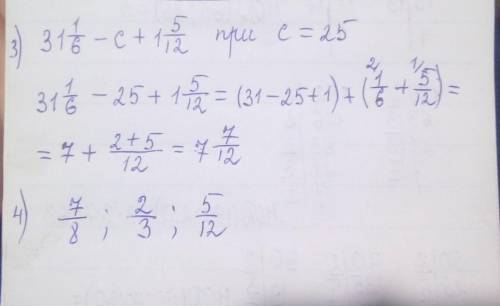 3) 31 1/6 − c + 1 5/12 при c = 25
31 1/6 − 25 + 1 5/12 = (31−25+1) + (²1/6 + ¹⁄5/12) =
= 7 + (2+5)/12 = 7 7/12
4) 7/8 ; 2/3 ; 5/12